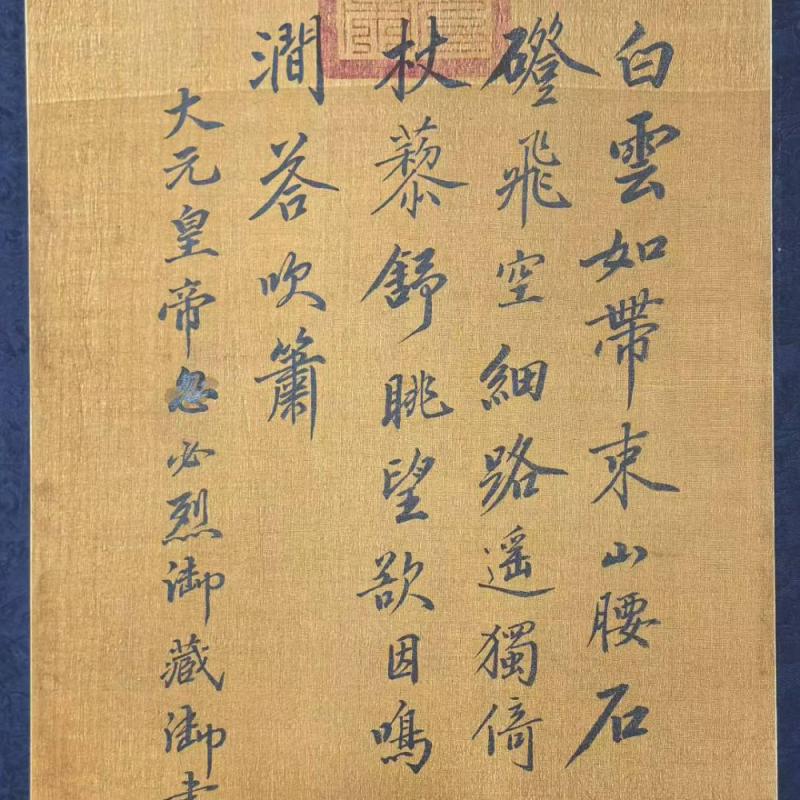 白雲如帶束山腰石
磴飛空細路遥獨倚
杖藜舒眺望欲因鳴
澗荅吹簫
大元皇帝忽必烈御藏御書